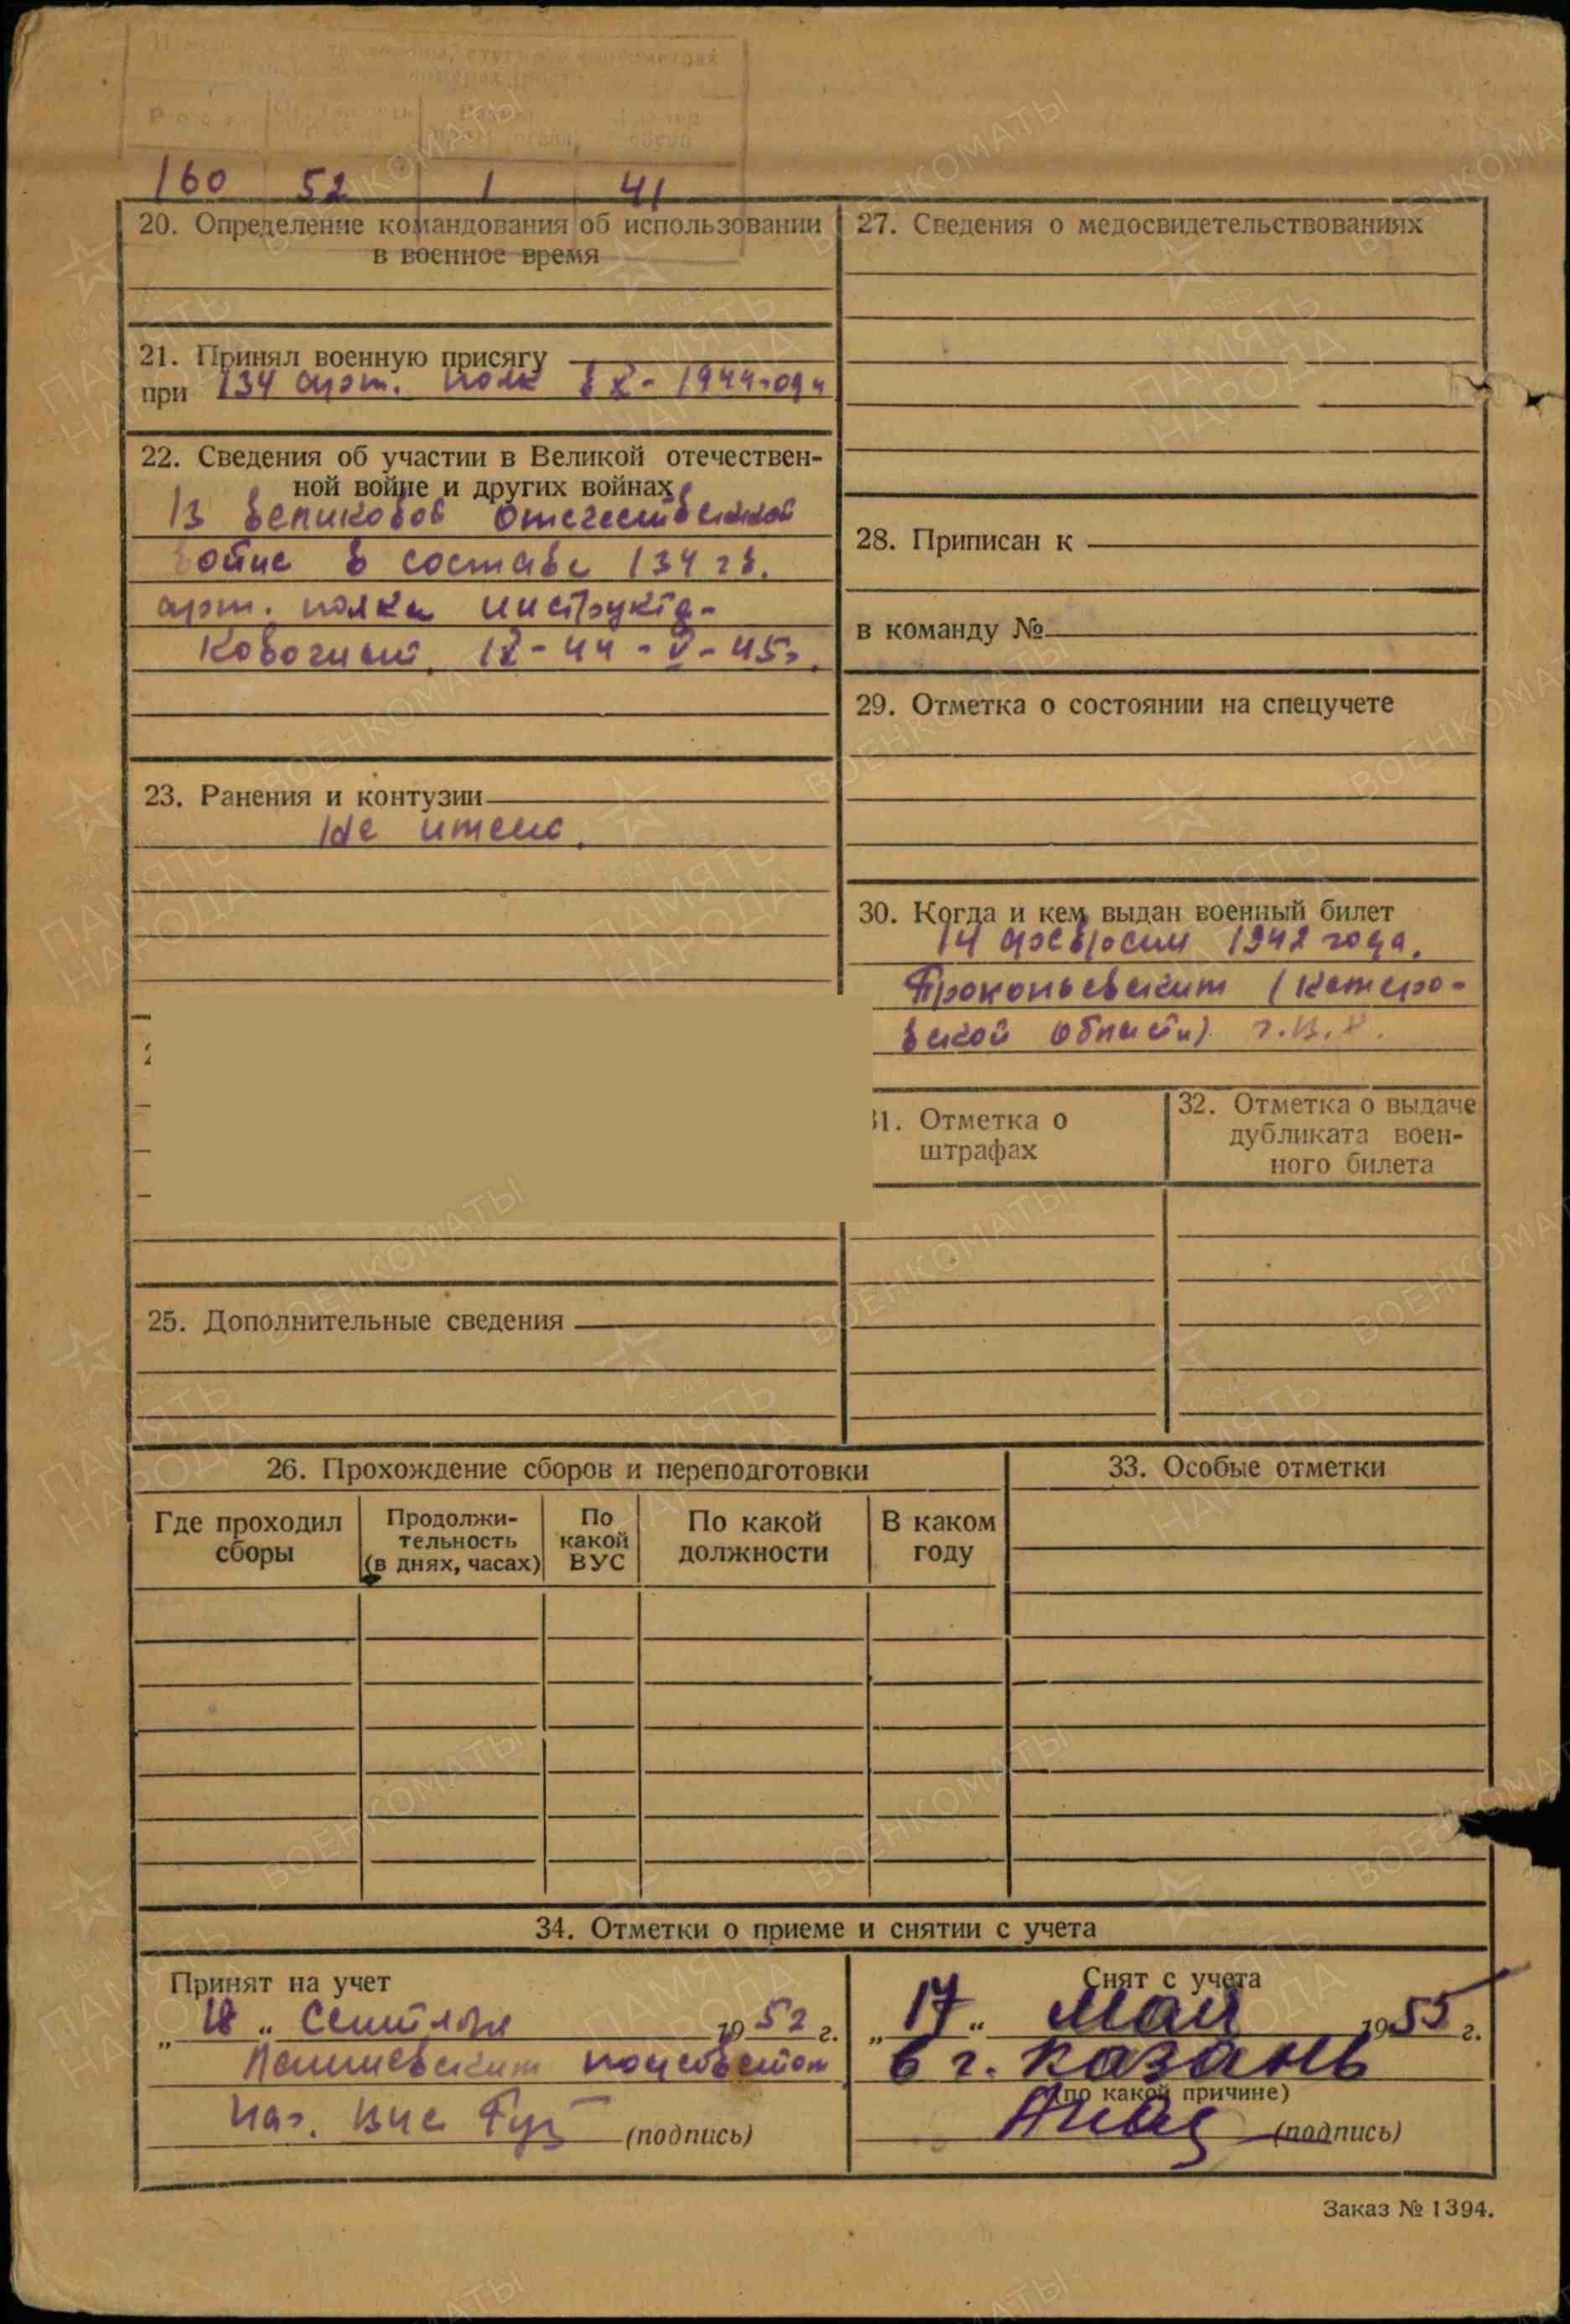 Рост
160 52 1 41
20. Определение командования об использовании
в военное время
21. Принял военную присягу
при 134 арт. полк IX - 1944 года
22. Сведения об участии в Великой отечествен-
ной войне и других войнах
В великовой отечественной
войне в составе 134 гв.
арт. полка инструкто-
Ковочный IX - 44 - V - 45г.
23. Ранения и контузии
Не имеет.
25. Дополнительные сведения
26. Прохождение сборов и переподготовки
Где проходил
сборы
Продолжи-
тельность
(в днях, часах)
По
какой
ВУС
По какой
должности
В каком
году
27. Сведения о медосвидетельствованиях
28. Приписан к
в команду №
29. Отметка о состоянии на спецучете
30. Когда и кем выдан военный билет
14 февраля 1948 года.
Прокопьевским (Кемеро-
вской области) г.В.К.
31. Отметка о
штрафах
32. Отметка о выдаче
дубликата воен-
ного билета
33. Особые отметки
34. Отметки о приеме и снятии с учета
Принят на учет
„ 18 “ Сентября 1952 г.
Нач. ВУС (подпись)
Снят с учета
„ 17 “ Мая 1955 г.
в г. Казань
(по какой причине)
(подпись)
Заказ № 1394.
ПАМЯТЬ
НАРОДА
1941-1945
ВОЕНКОМАТЫ